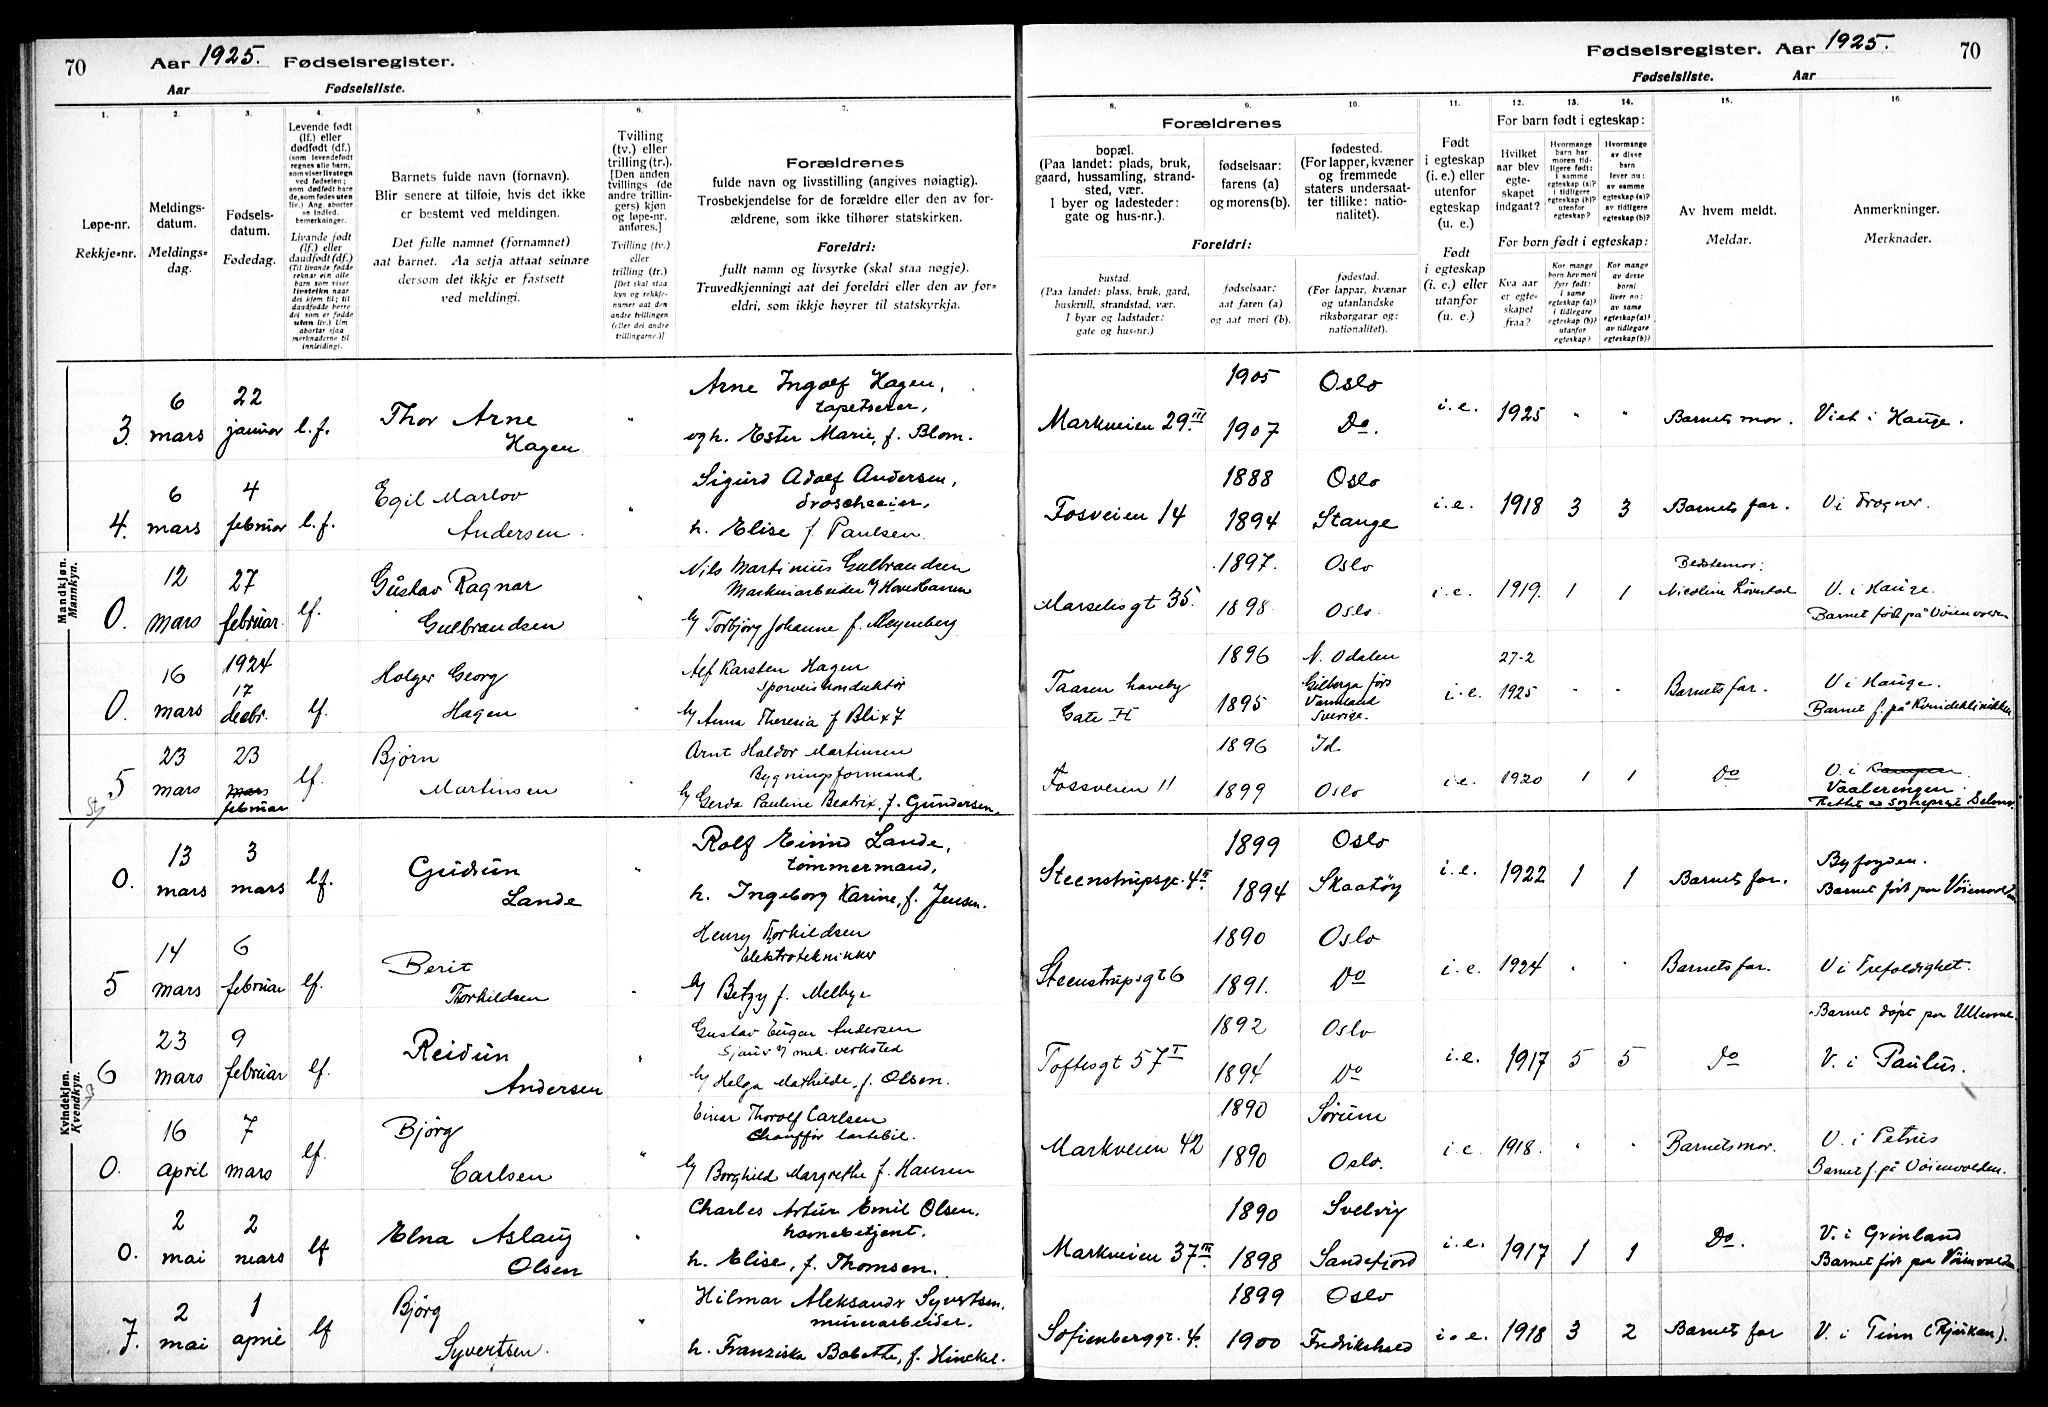 70
Aar 1925. Fødselsregister.
Aar Fødselsliste.
Fødselsregister. Aar 1925.
70
Fødselsliste. Aar
1. 2. 3. 4. 5. 6. 7. 8. 9. 10. 11. 12. 13. 14. 15. 16.
Løpe-nr.
Rekkje-nr.
Meldings-
datum.
Meldings-
dag.
Fødsels-
datum.
Fødedag.
Levende født
(lf.) eller
dødfødt (df.)
Livande født
(lf.) eller
daudfødt (df.)
Barnets fulde navn (fornavn).
Blir senere at tilføie, hvis det ikke
er bestemt ved meldingen.
Det fulle namnet (fornamnet)
aat barnet. Aa setja attaat seinare
dersom det ikkje er fastsett
ved meldingi.
Tvilling
(tv.) eller
trilling (tr.).
[Den anden
tvillings (de
andre trillin-
gers) kjøn
og løpe-nr.
anføres.]
Tvilling (tv.)
eller
trilling (tr.)
Forældrenes
fulde navn og livsstilling (angives nøiagtig).
Trosbekjendelse for de forældre eller den av for-
ældrene, som ikke tilhører statskirken.
Foreldri:
fullt namn og livsyrke (skal staa nøgje).
Truvedkjenningi aat dei foreldri eller den av for-
eldri, som ikkje høyrer til statskyrkja.
Forældrenes
bopæl.
(Paa landet: plads, bruk,
gaard, hussamling, strand-
sted, vær.
I byer og ladesteder:
gate og hus-nr.).
fødselsaar:
farens (a)
og morens (b).
fødested.
(For lapper, kvæner
og fremmede
staters undersaat-
ter tillike: natio-
nalitet).
Foreldri:
bustad.
(Paa landet: plass, bruk, gard,
huskrull, strandstad, vær.
I byar og ladstader:
gate og hus-nr.)
fødselsaar:
aat faren (a)
og aat mori (b).
fødestad.
(For lappar, kvænar
og utanlandske
riksborgarar og:
nationalitet).
Født
i egteskap
(i. e.) eller
utenfor
egteskap
(u. e.)
Født
i egteskap
(i. e.) eller
utanfor
(u. e.)
For barn født i egteskap:
Hvilket
aar blev
egte-
skapet
indgaat?
For born født i egteskap:
Kva aar
er egte-
skapet
fraa?
Av hvem meldt.
Meldar.
Anmerkninger.
Merknader.
Mandkjøn.
Mannkyn.
3. 6 mars 22 januar l.f. Thor Arne Hagen
Arne Ingolf Hagen, tapetserer,
ogh. Ester Marie, f. Blom.
Markveien 29 III 1905 Oslo
1907 Do.
i.e. 1925 " " Barnets mor. Viet i Hauge.
4. 6 mars 4 februar l.f. Egil Marlov Andersen
Sigurd Adolf Andersen, droscheeier,
h. Elise f. Paulsen.
Fosveien 14 1888 Oslo
1894 Stange
i.e. 1918 3 3 Barnets far. V. i Frogner.
0. 12 mars 27 februar. lf. Gustav Ragnar Gulbrandsen
Nils Martinius Gulbrandsen
Maskinarbeider
Torbjørg Johanne f. Meyenberg
Marselisgt 35. 1897. Oslo
1898 Oslo.
i.e. 1919. 1 1 Bedstemor: V. i Hauge.
Barnet født på Vöienvolden
0. 16 mars 1924 17 decbr. lf. Holger Georg Hagen
Alf Karsten Hagen
Sporveiskonduktør
Anna Theresia f Blix
Taasen haveby
Gate H 1896 N. Odalen
1895 Gilberga førs Värmland Sverige.
i.e. 27-2 1925 " " Barnets far. V i Hauge.
Barnet f. på Kvindeklinikken
5 23 mars 23 mars februar lf. Bjørn Martinsen
Arnt Haldor Martinsen
Bygningsformand
Gerda Pauline Beatrix, f. Gundersen.
Fossveien 11 1896 Id.
1899 Oslo
i.e. 1920 1 1 Do V. i Kampen.
Vaalerengen.
Kvindekjøn.
Kvendkyn.
0. 13 mars 3 mars lf. Gudrun Lande
Rolf Eivind Lande, tømmermand,
h. Ingeborg Karine, f. Jensen.
Steenstrupsgt. 4 II 1899 Oslo
1894 Skaatøy
i.e. 1922 1 1 Barnets far. Byfogden.
Barnet født paa Vöienvolden
5 14 mars 6 februar lf. Berit Thorkildsen
Henry Thorkildsen
Elektrotekniker
Betzy f. Melbye
Steenstrupsgt 6 1890 Oslo
1891. Do
i.e. 1924 " " Barnets far. V i Trefoldighet.
Barnet døpt paa
6 23 mars 9 februar lf. Reidun Andersen
Gustav Eugen Andersen
Sjauer mek. verksted
Helga Mathilde, f. Olsen.
Toftesgt 57 I 1892 Oslo
1894 Do
i.e. 1917 5 5 Do V. i Paulus.
0. 16 april 7 mars lf. Bjørg Carlsen
Einar Thorolf Carlsen
Chauffør lastebil.
Borghild Margrethe f. Hansen
Markveien 42 1890 Sørum
1890 Oslo.
i.e. 1918. " " Barnets mor. V. i Petrus
Barnet f. på Vöienvolden.
0. 2 mai 2 mars lf Elna Aslaug Olsen
Charles Artur Emil Olsen, havnebetjent.
h. Elise, f. Thomsen.
Markveien 37 III 1890 Svelvig
1898 Sandefjord
i.e. 1917 1 1 Do. V. i Grønland
Barnet født paa Vöienvolden
7. 2 mai 1 april lf Bjørg Syvertsen.
Hilmar Aleksandr Syvertsen, murerarbeider.
h. Franziska Babette, f. Hinckel.
Sofienberggt. 4. 1899 Oslo
1900 Fredrikshald
i.e. 1918 3 2 Barnets far V. i Tinn (Rjukan).